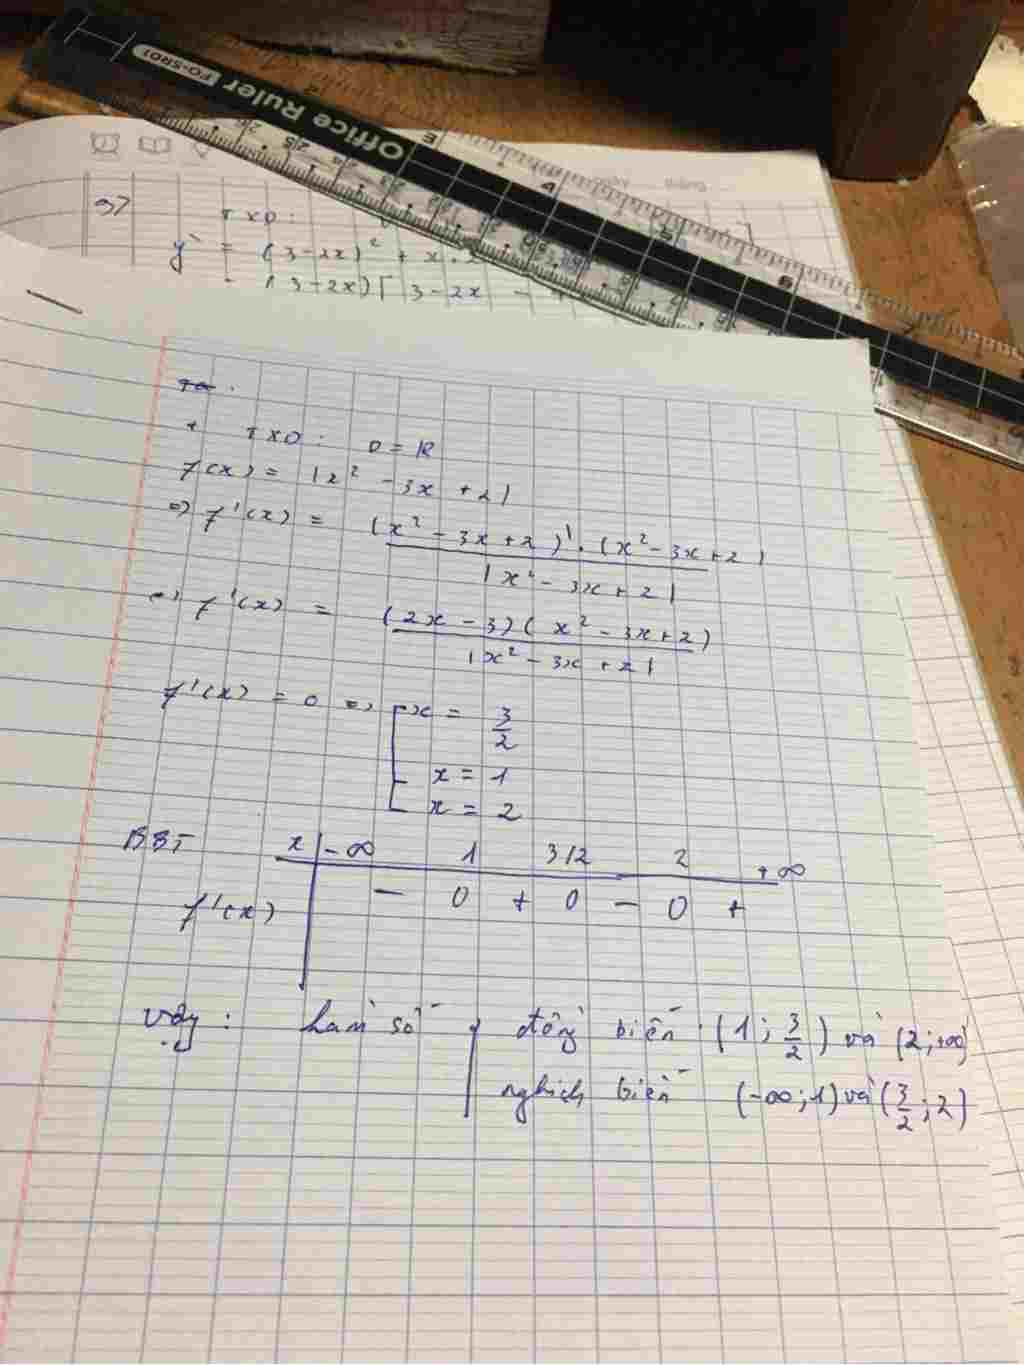 FO-SR01 Office Ruler
a>
TXD:
y' = (3-2x)² + x.2
(3-2x)[3-2x -
+ TXD: D = R
f(x) = |x² - 3x + 2|
=> f'(x) = (x² - 3x + 2)'.(x² - 3x + 2)
|x² - 3x + 2|
=> f'(x) = (2x - 3)(x² - 3x + 2)
|x² - 3x + 2|
f'(x) = 0 => [ x = 3/2
x = 1
x = 2
BBT x -∞ 1 3/2 2 +∞
f'(x) - 0 + 0 - 0 +
Vậy: hàm số đồng biến (1; 3/2) và (2; +∞)
nghịch biến (-∞; 1) và (3/2; 2)